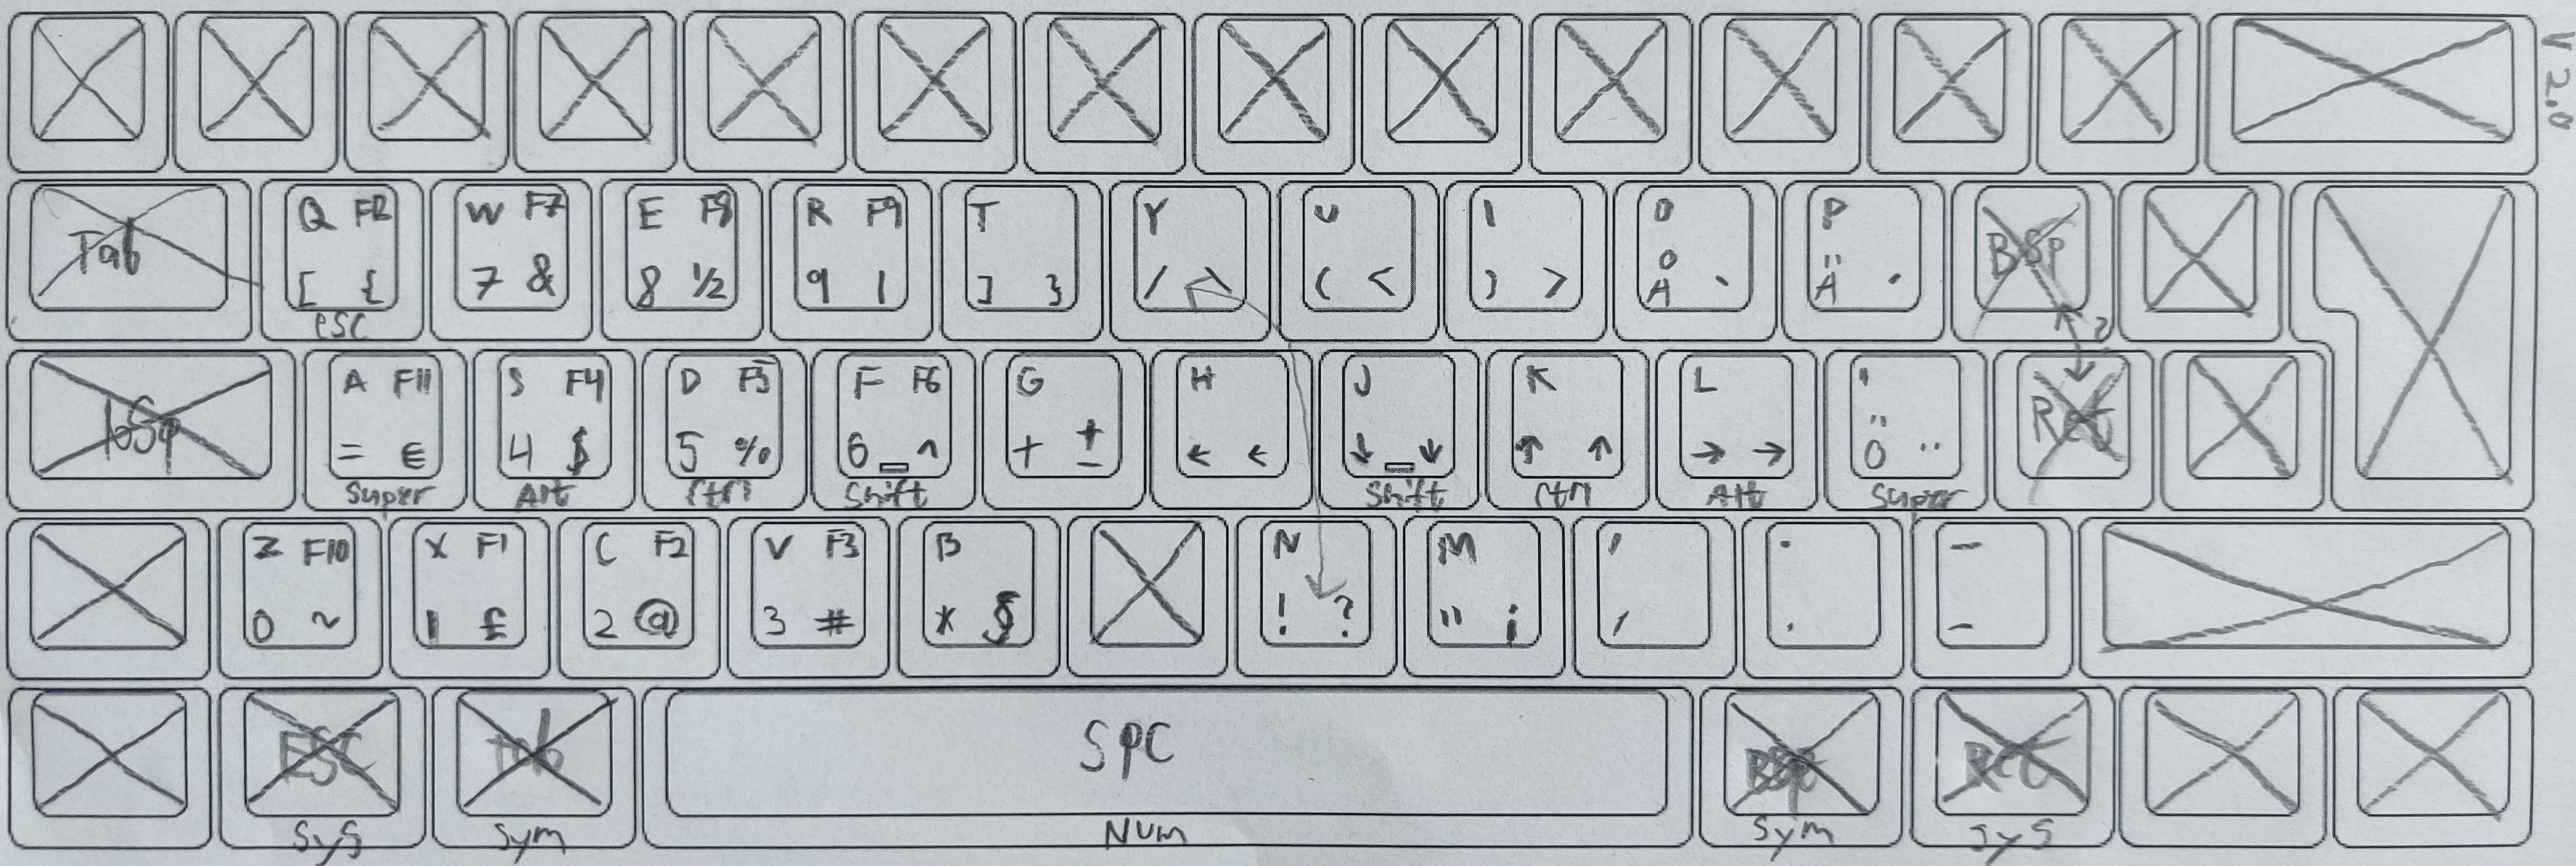 V 2.0
Tab
Q F12
[ {
esc
W F7
7 &
E F8
8 ½
R F9
9 |
T
] }
Y
/ \
U
( <
I
) >
O
Å `
P
Ä ´
BSp
?
BSp
A F11
= €
Super
S F4
4 $
Alt
D F5
5 %
Ctrl
F F6
6 ^
Shift
G
+ ±
H
← ←
J
↓ ↓
Shift
K
↑ ↑
Ctrl
L
→ →
Alt
'
Ö ¨
Super
Ret
Z F10
0 ~
X F1
1 £
C F2
2 @
V F3
3 #
B
* §
N
! ?
M
" ¡
,
,
.
.
-
-
ESC
Sys
tab
Sym
SPC
Num
BSp
Sym
Ret
Sys